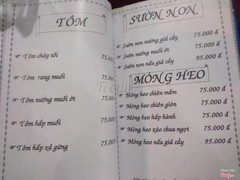 TÔM
Tôm cháy tỏi 75.000 đ
Tôm rang muối 75.000 đ
Tôm nướng muối ớt 75.000 đ
Tôm hấp muối 75.000 đ
Tôm hấp xả gừng 75.000 đ
SƯỜN NON
Sườn non nướng giả cầy 75.000 đ
Sườn nướng muối ớt 95.000 đ
Sườn non nấu giả cầy 95.000 đ
MÓNG HEO
Móng heo chiên mắm 75.000 đ
Móng heo chiên giòn 75.000 đ
Móng heo hấp hành 75.000 đ
Móng heo xào chua ngọt 95.000 đ
Móng heo nấu giả cầy 95.000 đ